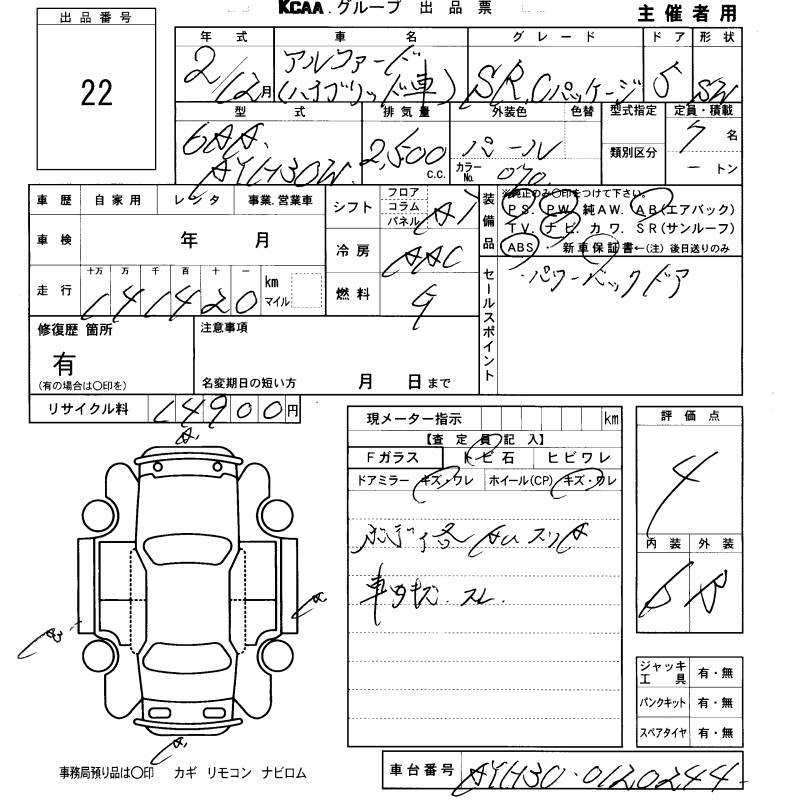 KCAA.グループ 出品票
主催者用
出品番号
22
年式 車名 グレード ドア 形状
2/12月 アルファード(ハイブリッド車) SR.Cパッケージ 5 SW
型式 排気量 外装色 色替 型式指定 定員・積載
6AA. AYH30W. 2,500 c.c. パール 類別区分 7名
カラーNo. 070. ートン
車歴 自家用 レンタ 事業.営業車
車検 年 月
走行 十万 万 千 百 十 一
141420 km マイル
シフト フロア コラム パネル AT
冷房 AAC
燃料 G
装備品
※純正のみ〇印をつけて下さい。
PS. PW. 純AW. AB(エアバック)
TV. ナビ. カワ. SR(サンルーフ)
ABS. 新車保証書←(注) 後日送りのみ
セールスポイント
・パワーバックドア
修復歴 箇所
有
(有の場合は〇印を)
注意事項
名変期日の短い方 月 日まで
リサイクル料 14900円
現メーター指示 km
【査定員記入】
Fガラス トビ石 ヒビワレ
ドアミラー キズ・ワレ ホイール(CP) キズ・ワレ
車内キズ.スレ.
評価点
4
内装 外装
B B
A1
ジャッキ工具 有・無
パンクキット 有・無
スペアタイヤ 有・無
事務局預り品は〇印 カギ リモコン ナビロム
車台番号 AYH30-0120244